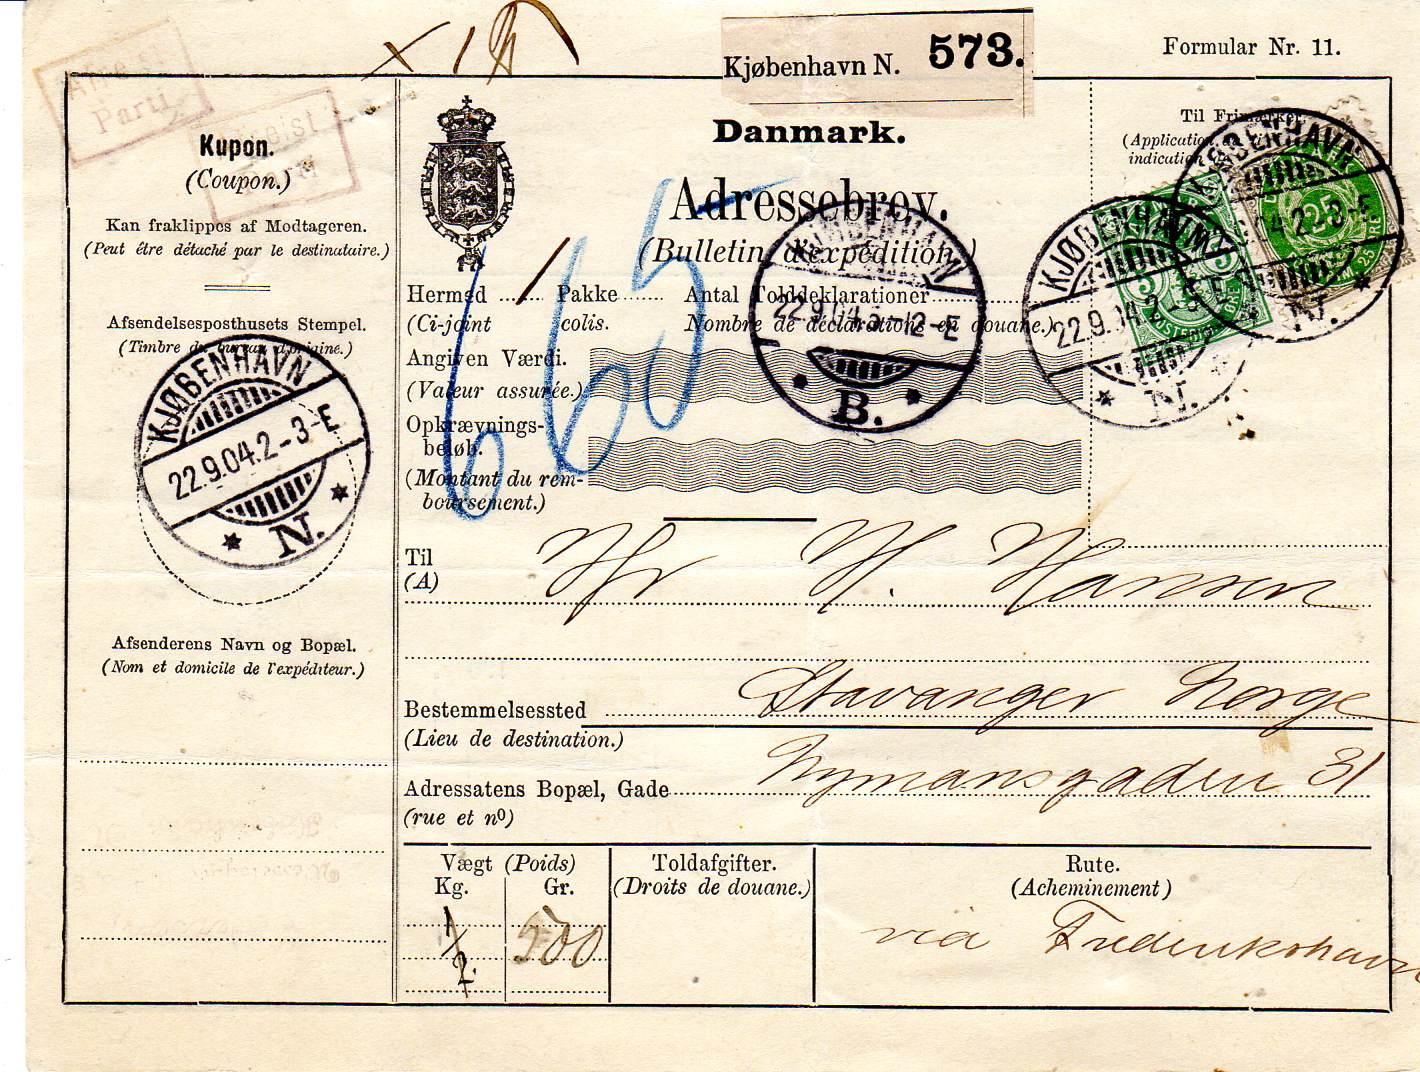 Kjøbenhavn N. 573.
Formular Nr. 11.
Afreist
Parti
Kupon.
(Coupon.)
Kan fraklippes af Modtageren.
(Peut être détaché par le destinataire.)
Afsendelsesposthusets Stempel.
(Timbre du bureau d'origine.)
KJØBENHAVN
22.9.04.2-3-E
N.
Afsenderens Navn og Bopæl.
(Nom et domicile de l'expéditeur.)
Danmark.
Adressebrev.
(Bulletin d'expédition.)
Hermed 1 Pakke Antal Tolddeklarationer
(Ci-joint colis. Nombre de déclarations en douane.)
Angiven Værdi.
(Valeur assurée.)
Opkrævnings-
beløb.
(Montant du rem-
boursement.)
665
KJØBENHAVN
22.9.04
-12-E
B.
Til Frimærker.
(Application
indication
KJØBENHAVN
22.9.04.2
N.
KJØBENHAVN
04.2-3-E
N.
5
25
Til Hr H. Hansen
(A)
Bestemmelsessted Stavanger Norge
(Lieu de destination.)
Adressatens Bopæl, Gade Nymansgaden 31
(rue et nº)
Vægt (Poids)
Kg. Gr.
1/2. 500
Toldafgifter.
(Droits de douane.)
Rute.
(Acheminement)
via Frederikshavn